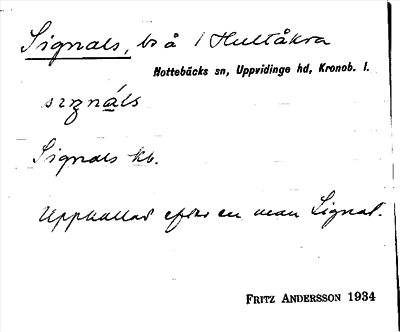 Signals, bs å i Hultåkra
Nottebäcks sn, Uppvidinge hd, Kronob. l.
sɪŋnáls
Signals kb.
Uppkallat efter en man Signal.
FRITZ ANDERSSON 1934